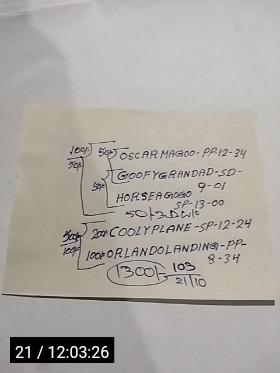 100/- 50/- OSCARMAGOO-PP-12-34
50/- GOOFYGRANDAD-SD-
9-01
50/- HORSEAGOGO
SP-13-00
50/3DW/C
500/- 200/- COOLYPLANE-SP-12-24
100/- 100/- ORLANDOLANDING-PP-
8-34
1300/- 103
21/10
21 / 12:03:26